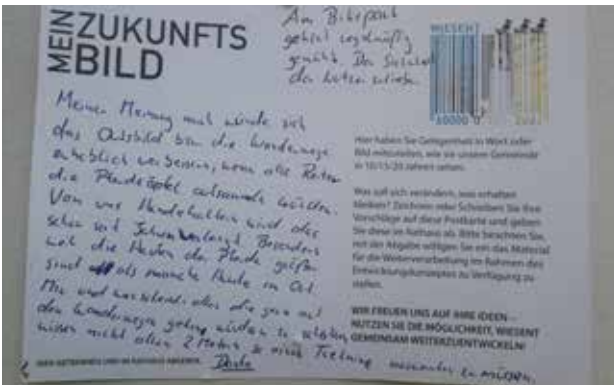 MEIN ZUKUNFTS
BILD
Am Bikepark
gehört regelmäßig
gemäht. Der
WIESENT
10000 2021
Meiner Meinung nach würde sich
das Ortsbild bzw. die Wanderwege
erheblich verbessern, wenn alle Reiter
die Pferdeäpfel aufsammeln müssten.
Von uns Hundehaltern wird dies
schon seit Jahren verlangt. Besonders
weil die Haufen der Pferde größer
sind als manche Hunde im Ort
Mir und wahrscheinlich allen die gern auf
den Wanderwegen gehen würden es schätzen
wissen nicht allen 2 Metern so einen Tretmine ausweichen zu müssen.
Danke
Hier haben Sie Gelegenheit in Wort oder
Bild mitzuteilen, wie sie unsere Gemeinde
in 10/15/20 Jahren sehen.
Was soll sich verändern, was erhalten
bleiben? Zeichnen oder Schreiben Sie Ihre
Vorschläge auf diese Postkarte und geben
Sie diese im Rathaus ab. Bitte beachten Sie,
mit der Abgabe willigen Sie ein das Material
für die Weiterverarbeitung im Rahmen des
Entwicklungskonzeptes zu Verfügung zu
stellen.
WIR FREUEN UNS AUF IHRE IDEEN –
NUTZEN SIE DIE MÖGLICHKEIT, WIESENT
GEMEINSAM WEITERZUENTWICKELN!
UND IM RATHAUS ABGEBEN.